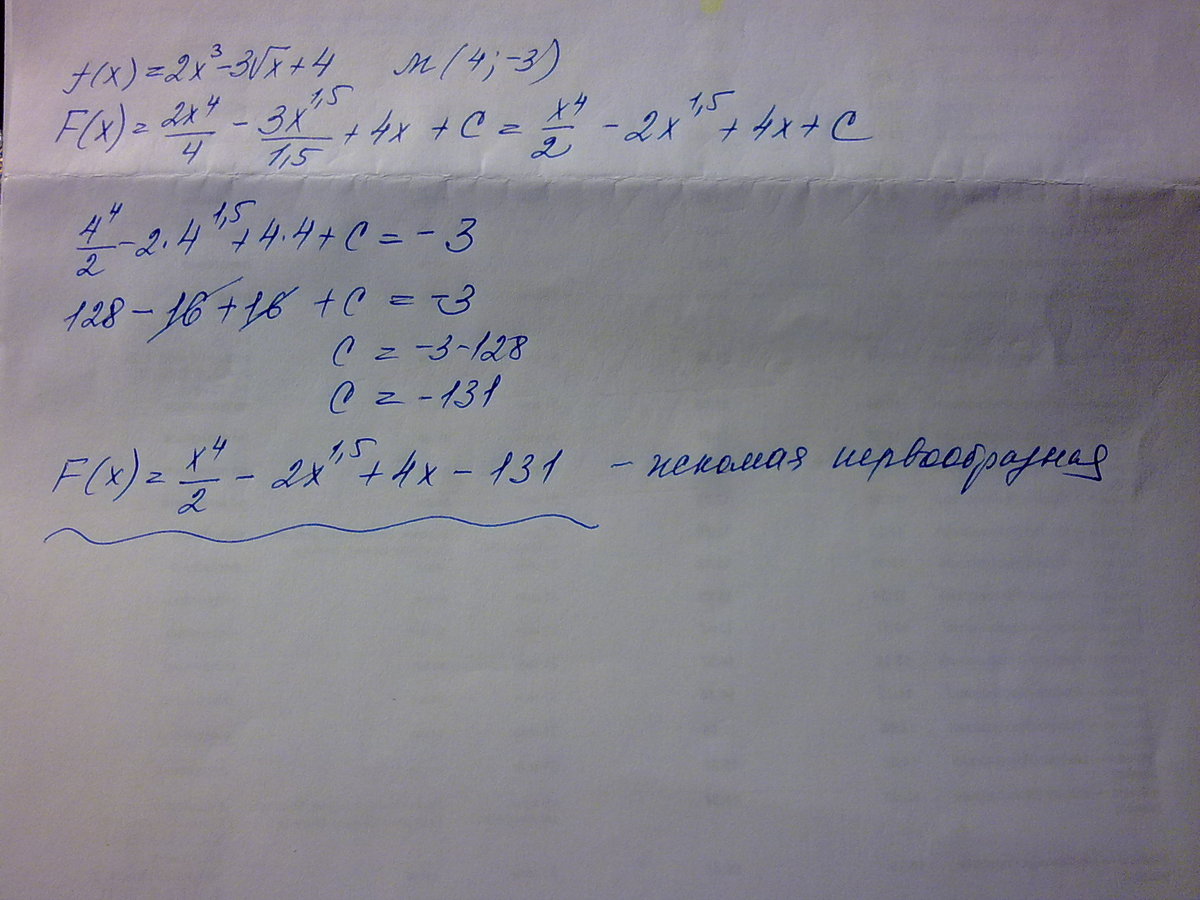 f(x) = 2x³ - 3√x + 4 М (4; -3)
F(x) = 2x⁴/4 - 3x^1,5/1,5 + 4x + C = x⁴/2 - 2x^1,5 + 4x + C
4⁴/2 - 2·4^1,5 + 4·4 + C = -3
128 - 16 + 16 + C = -3
C = -3 - 128
C = -131
F(x) = x⁴/2 - 2x^1,5 + 4x - 131 - искомая первообразная